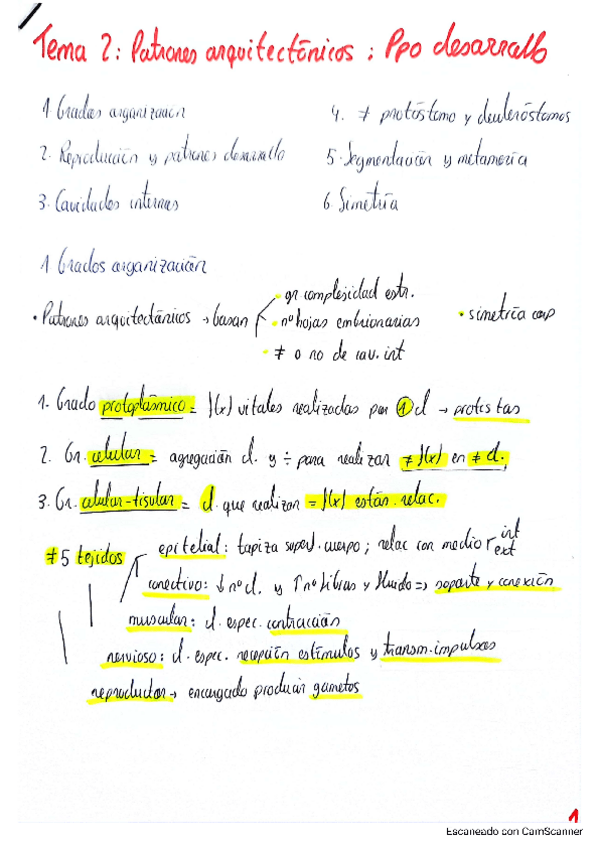 Tema 2: Patrones arquitectónicos; Ppo desarrollo
1. Grados organización
4. ≠ protóstomo y deuteróstomos
2. Reproducción y patrones desarrollo
5. Segmentación y metamería
3. Cavidades internas
6. Simetría
1 Grados organización
• Patrones arquitectónicos → basan
• gr complejidad estr.
• nº hojas embrionarias
• ≠ o no de cav. int
• simetría corp
1. Grado protoplásmico = f(x) vitales realizadas por 1 cl → protistas
2. Gr. celular = agregación cl. y ÷ para realizar ≠ f(x) en ≠ cl.
3. Gr. celular-tisular = cl. que realizan = f(x) están relac.
≠ 5 tejidos
epitelial: tapiza superf. cuerpo; relac con medio int ext
conectivo: ↓ nº cl. y ↑ nº fibras y fluido => soporte y conexión
muscular: cl. espec. contracción
nervioso: cl. espec. recepción estímulos y transm. impulsos
reproductor → encargado producir gametos
1
Escaneado con CamScanner